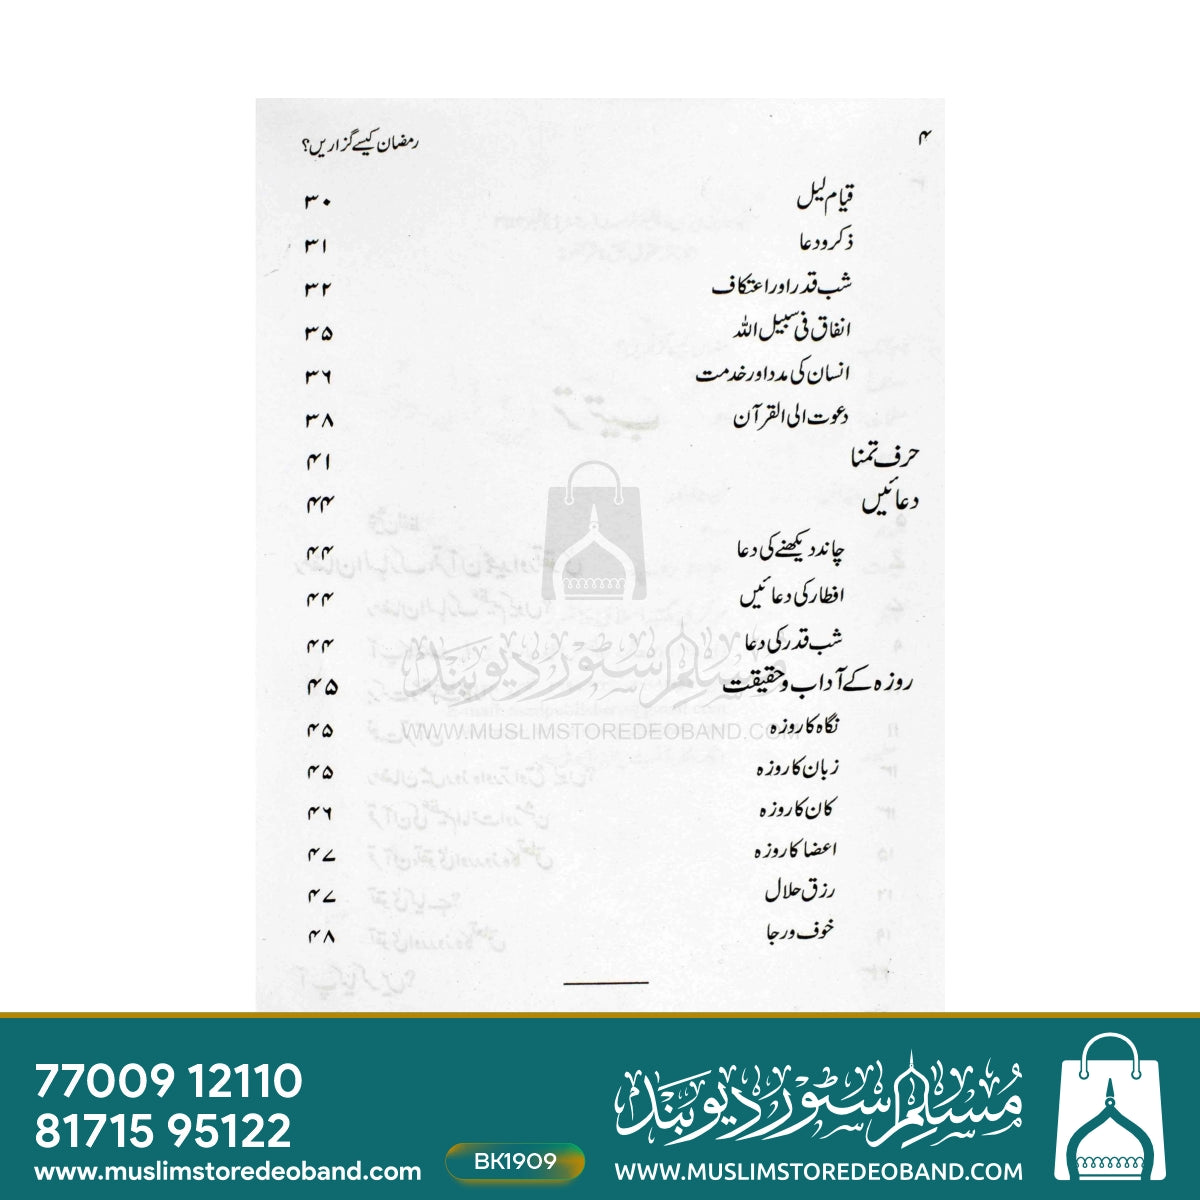 ۴ رمضان کیسے گزاریں؟
قیام لیل ۳۰
ذکر و دعا ۳۱
شب قدر اور اعتکاف ۳۲
انفاق فی سبیل اللہ ۳۵
انسان کی مدد اور خدمت ۳۶
دعوت الی القرآن ۳۸
حرف تمنا ۴۱
دعائیں ۴۴
چاند دیکھنے کی دعا ۴۴
افطار کی دعائیں ۴۴
شب قدر کی دعا ۴۴
روزہ کے آداب و حقیقت ۴۵
نگاہ کا روزہ ۴۵
زبان کا روزہ ۴۵
کان کا روزہ ۴۶
اعضا کا روزہ ۴۷
رزق حلال ۴۷
خوف و رجا ۴۸
مسلم سٹور دیوبند
WWW.MUSLIMSTOREDEOBAND.COM
77009 12110
81715 95122
www.muslimstoredeoband.com
BK1909
مُسلم سٹور دیوبند
WWW.MUSLIMSTOREDEOBAND.COM